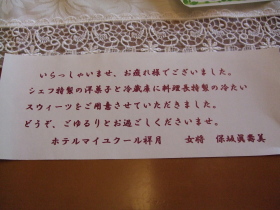 いらっしゃいませ、お疲れ様でございました。
シェフ特製の洋菓子と冷蔵庫に料理長特製の冷たい
スウィーツをご用意させていただきました。
どうぞ、ごゆるりとお過ごしくださいませ。
ホテルマイユクール祥月　女将　保坂眞壽美